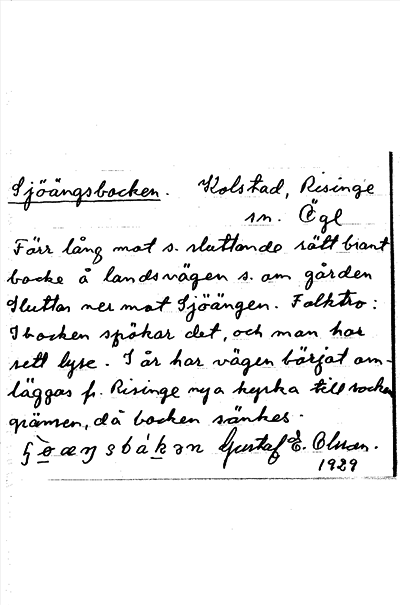 Sjöängsbacken. Kolstad, Risinge
sn. Ögl
Förr lång mot s. sluttande rätt brant
backe å landsvägen s. om gården
Sluttar ner mot Sjöängen. Folktro:
I backen spökar det, och man har
sett lyse. I år har vägen börjat om-
läggas fr. Risinge nya kyrka till socken
gränsen, då backen sänkes.
Gustaf E. Olsson.
1929